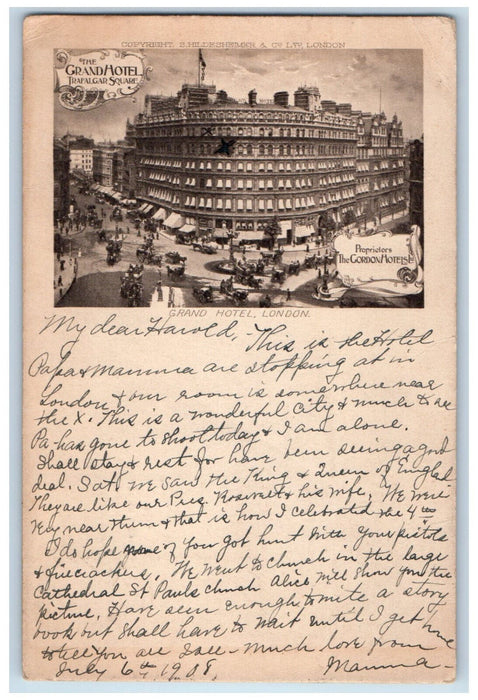 COPYRIGHT. S. HILDESHEIMER & CO LTD, LONDON
THE
GRAND HOTEL
TRAFALGAR SQUARE
Proprietors
The GORDON HOTELS Ld
GRAND HOTEL, LONDON.
My dear Harold, This is the Hotel
Papa & Mamma are stopping at in
London & our room is somewhere near
the X. This is a wonderful City & much to see
Pa has gone to shoot today & I am alone.
Shall stay & rest for have been seeing a good
deal. Sat. we saw the King & Queen of England
They are like our Pres. Rosevelt & his wife. We were
very near them & that is how I celebrated the 4th
I do hope none of you got hurt with your pistols
& firecrackers. We went to church in the large
Cathedral St Pauls church Alice will show you the
picture. Have seen enough to write a story
book but shall have to wait until I get home
to tell you all. Much love from
July 6th 1908, Mamma -